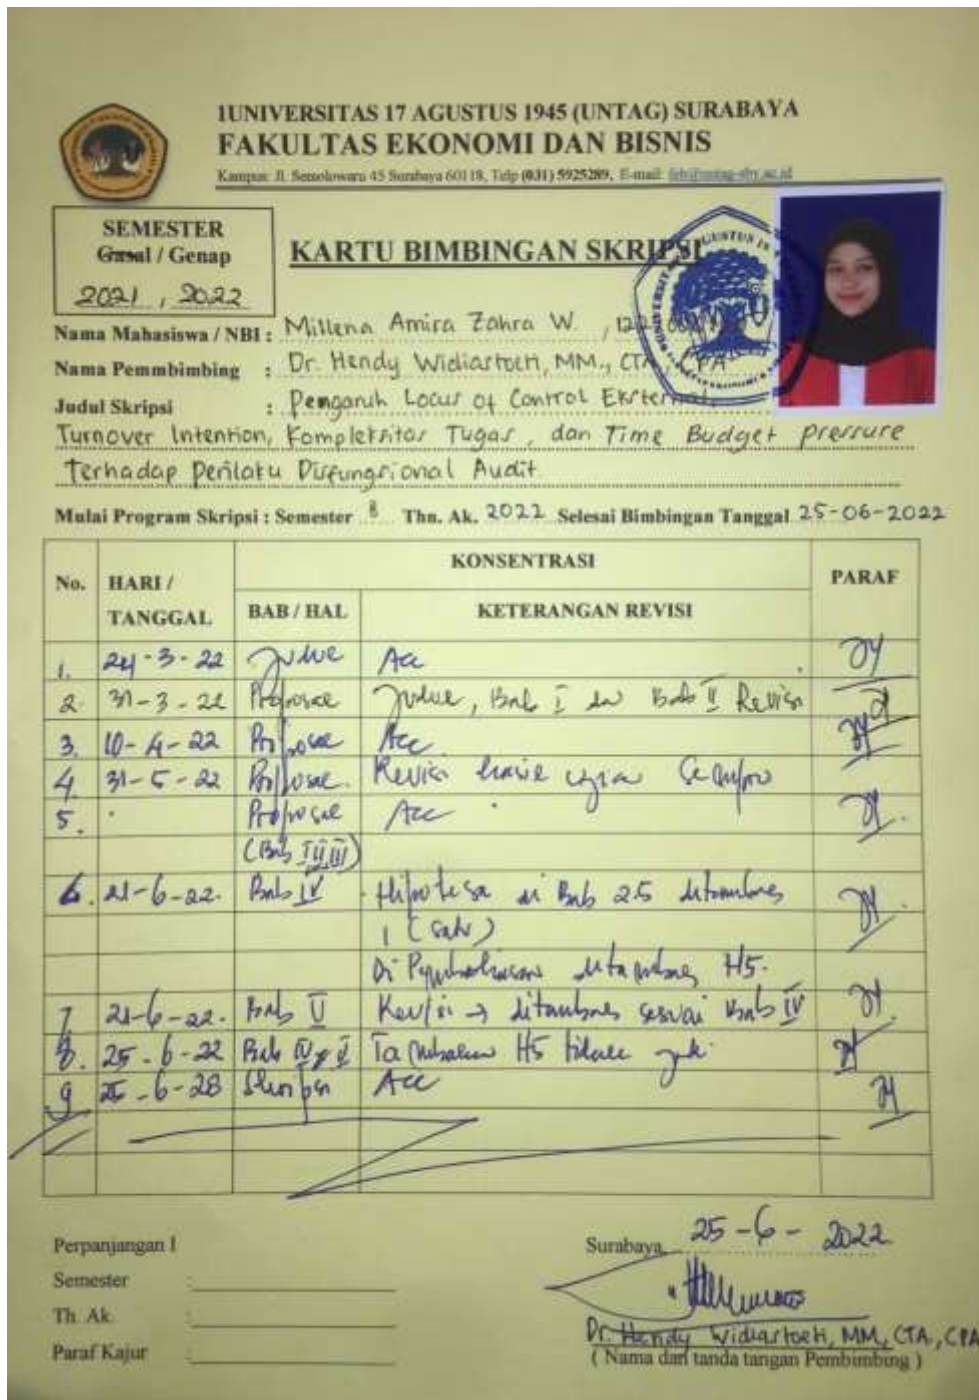 1UNIVERSITAS 17 AGUSTUS 1945 (UNTAG) SURABAYA
FAKULTAS EKONOMI DAN BISNIS
Kampus: Jl. Semolowaru 45 Surabaya 60118, Telp (031) 5925289, E-mail: feb@untag-sby.ac.id
SEMESTER
Gasal / Genap
2021 , 2022
KARTU BIMBINGAN SKRIPSI
Nama Mahasiswa / NBI : Millena Amira Zahra W. ,
Nama Pemmbimbing : Dr. Hendy Widiastoeti, MM., CTA., CPA
Judul Skripsi : Pengaruh Locus of Control Eksternal,
Turnover Intention, Kompleksitas Tugas, dan Time Budget pressure
Terhadap Perilaku Disfungsional Audit
Mulai Program Skripsi : Semester 8 Thn. Ak. 2022 Selesai Bimbingan Tanggal 25-06-2022
No. HARI / TANGGAL KONSENTRASI PARAF
BAB / HAL KETERANGAN REVISI
1. 24-3-22 Judul Acc
2. 31-3-22 Proposal Judul, Bab I dan Bab II Revisi
3. 10-4-22 Proposal Acc
4. 31-5-22 Proposal. Revisi hasil ujian Sempro
5. Proposal Acc
(Bab I, II, III)
6. 21-6-22. Bab IV - Hipotesa di Bab 2.5 ditambah
1 (satu)
Di Pembahasan ditambah H5.
7 21-6-22. Bab V Revisi → ditambah sesuai Bab IV
8. 25-6-22 Bab IV, V Tambahan H5
9 25-6-28 Skripsi Acc
Perpanjangan I
Semester :
Th. Ak. :
Paraf Kajur :
Surabaya, 25-6-2022
Dr. Hendy Widiastoeti, MM, CTA., CPA
( Nama dan tanda tangan Pembimbing )